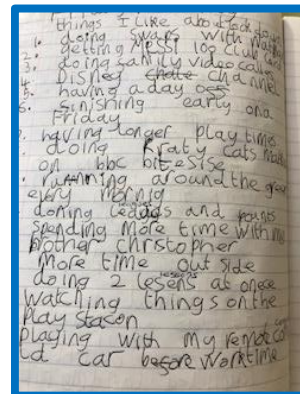 things I like about lock down
1. doing swaps with
2. getting MESSI 100 club card
3. doing family video calls
4. Disney channel
5. having a day off
6. finishing early on a
Friday
having longer play times
doing Karaty cats
on bbc bitesise
running around the
every mornig
doning and
spending more time with my
brother chrstopher
more time out side
doing 2 lesens at onece
watching things on the
play stason
playing with my remote
car before work time